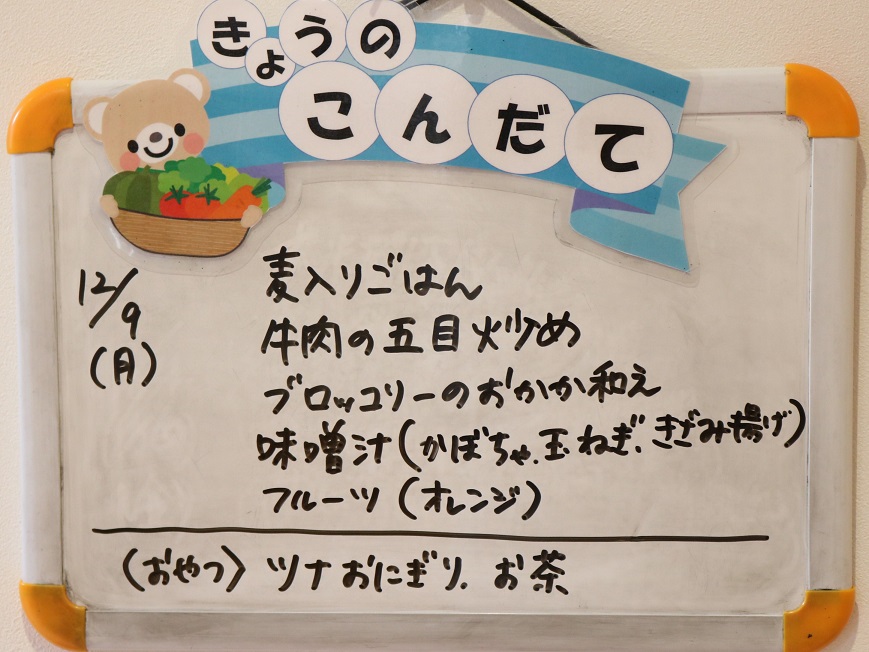 きょうの
こんだて
12/9
(月)
麦入りごはん
牛肉の五目炒め
ブロッコリーのおかか和え
味噌汁(かぼちゃ、玉ねぎ、きざみ揚げ)
フルーツ(オレンジ)
(おやつ) ツナおにぎり、お茶